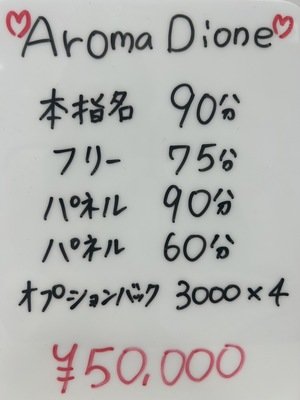 Aroma Dione
本指名 90分
フリー 75分
パネル 90分
パネル 60分
オプションバック 3000×4
¥50,000